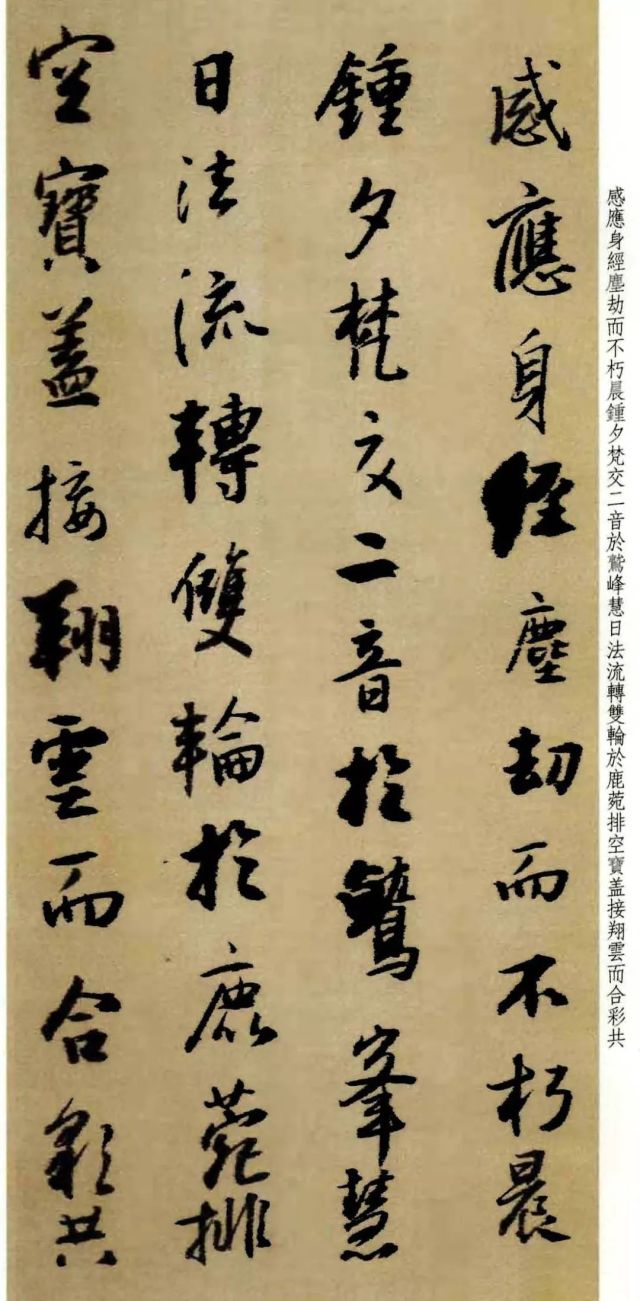 感應身經塵劫而不朽晨
鍾夕梵交二音於鷲峯慧
日法流轉雙輪於鹿菀排
空寶蓋接翔雲而合彩共
感應身經塵劫而不朽晨鍾夕梵交二音於鷲峰慧日法流轉雙輪於鹿菀排空寶盖接翔雲而合彩共